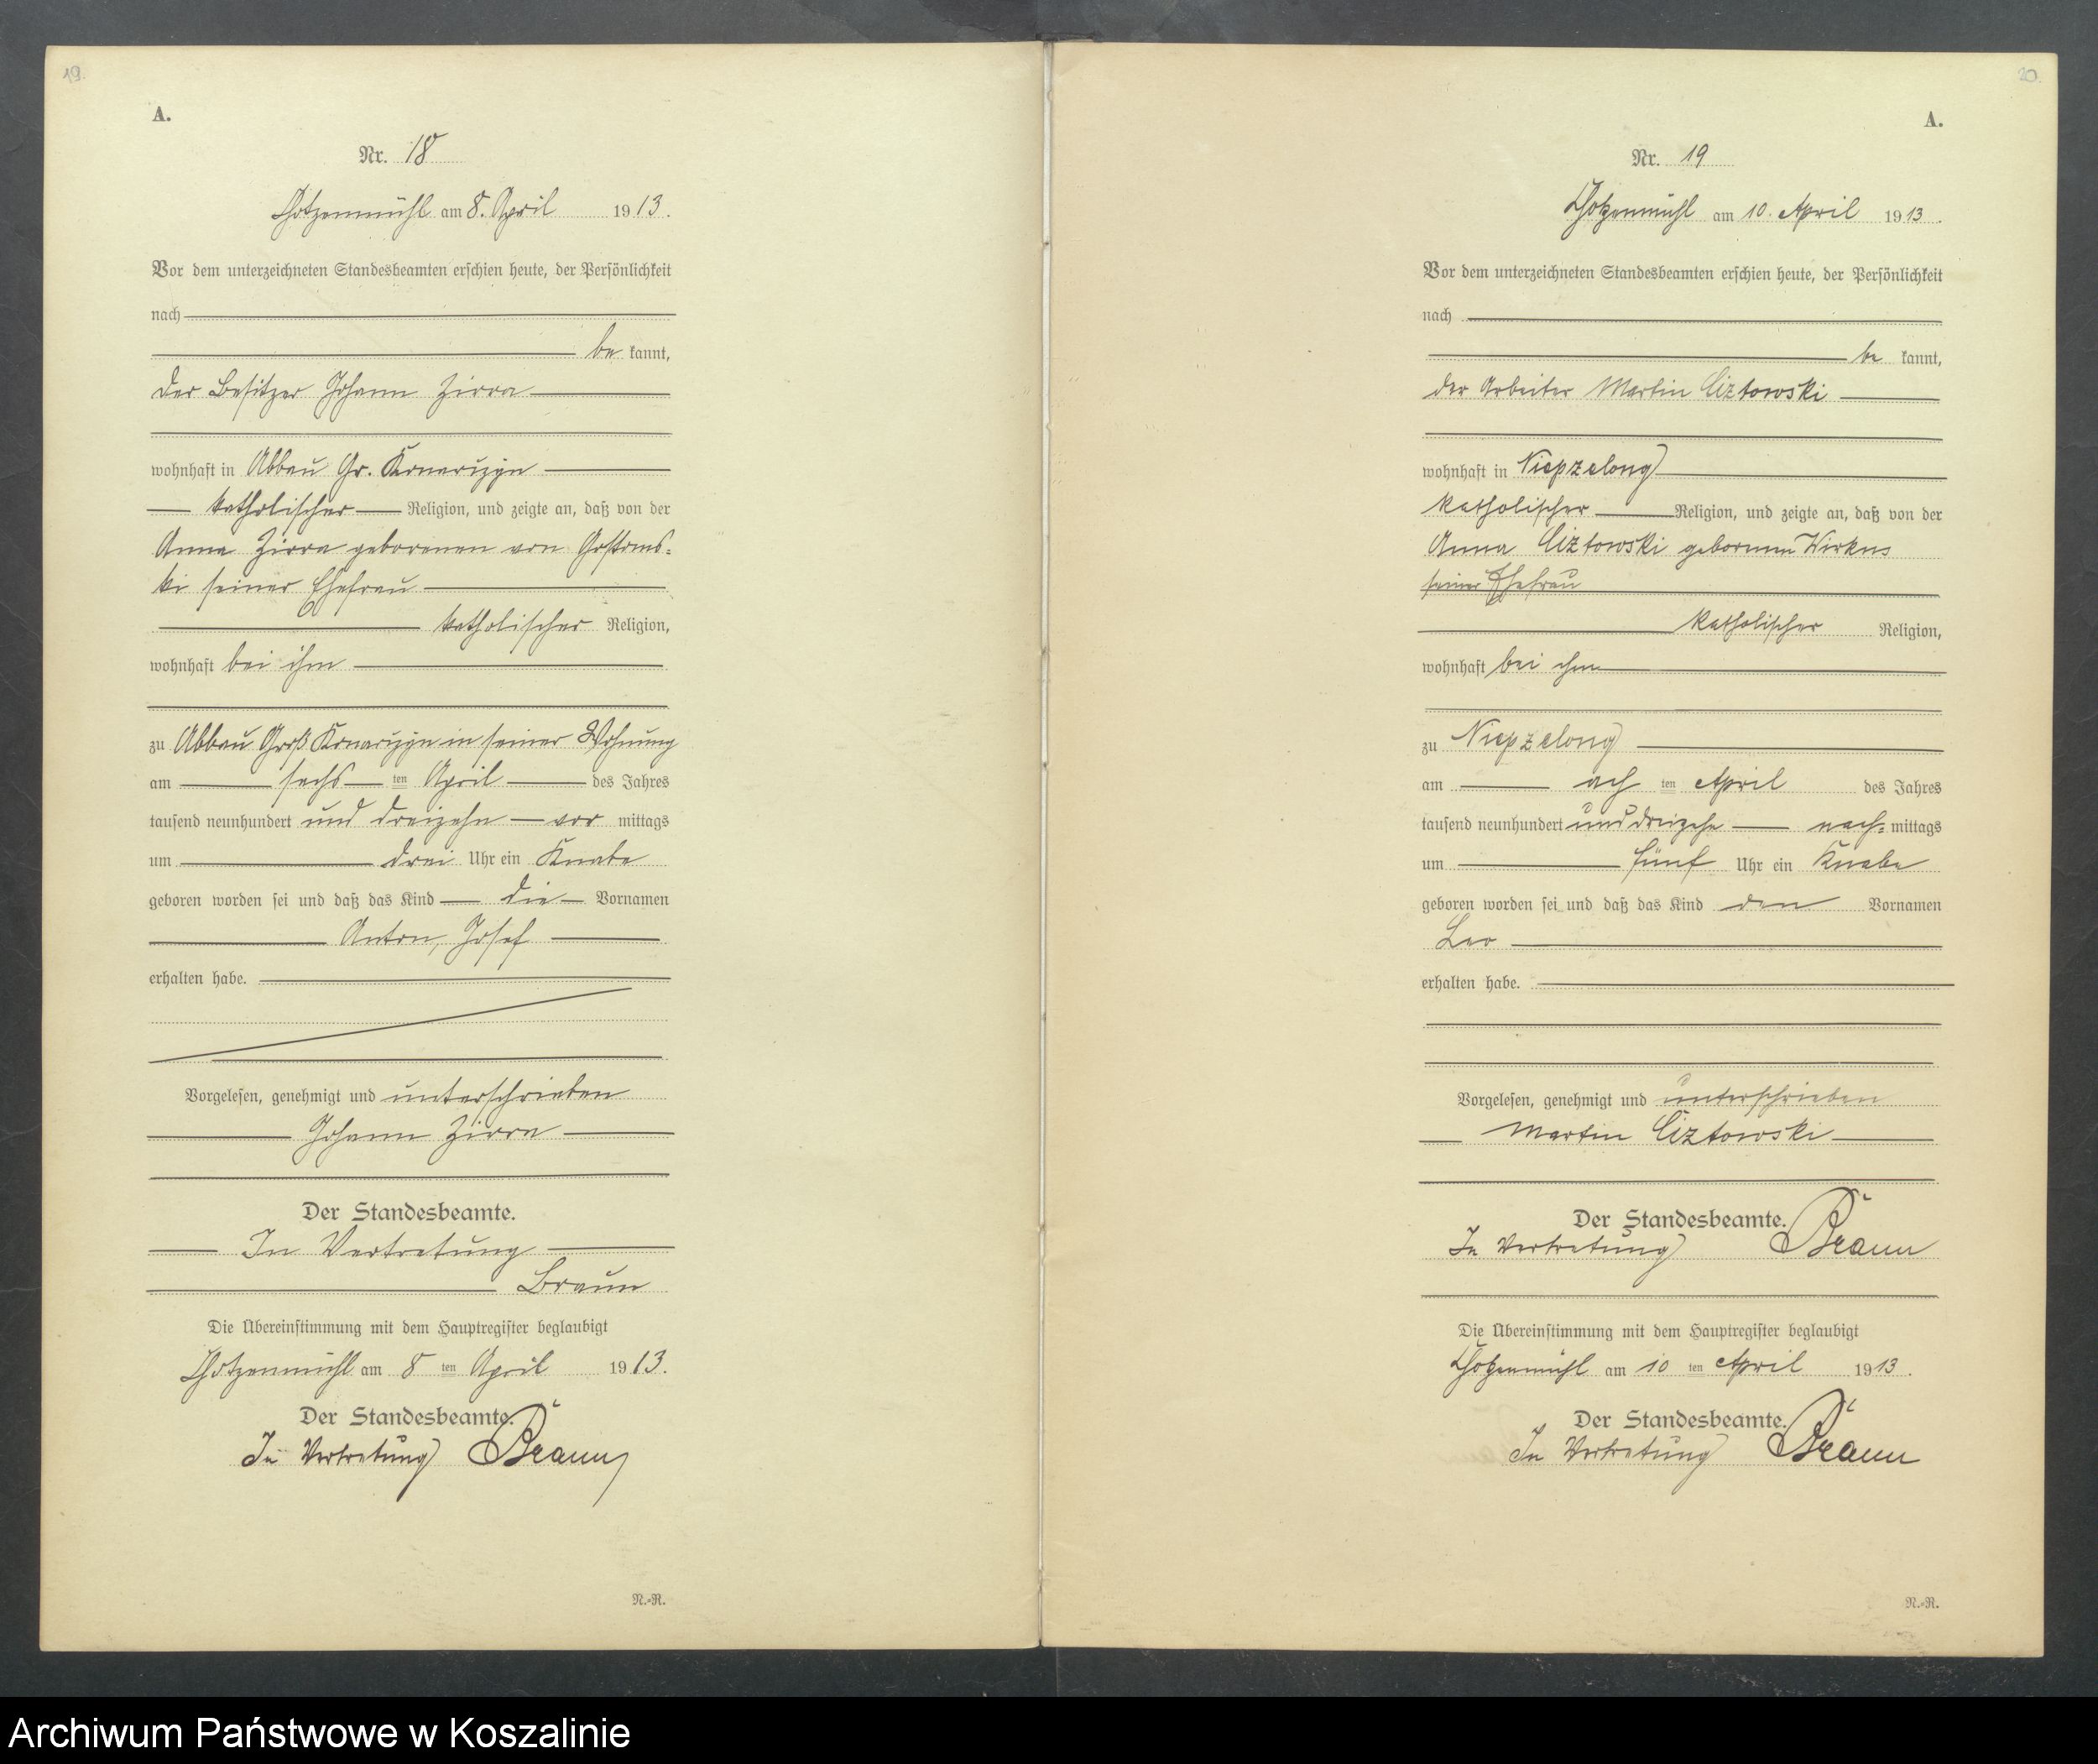 19.
A.
Nr. 18
Chotzenmühl am 8. April 1913.
Vor dem unterzeichneten Standesbeamten erschien heute, der Persönlichkeit
nach
be kannt,
der Besitzer Johann Zirra
wohnhaft in Abbau Gr.
katholischer Religion, und zeigte an, daß von der
Anna Zirra geborenen von Gostoms-
ki seiner Ehefrau
katholischer Religion,
wohnhaft bei ihm
zu Abbau Groß in seiner Wohnung
am sechs ten April des Jahres
tausend neunhundert und dreizehn vor mittags
um drei Uhr ein Knabe
geboren worden sei und daß das Kind die Vornamen
Anton, Josef
erhalten habe.
Vorgelesen, genehmigt und unterschrieben
Johann Zirra
Der Standesbeamte.
In Vertretung
Braun
Die Übereinstimmung mit dem Hauptregister beglaubigt
Chotzenmühl am 8 ten April 1913.
Der Standesbeamte.
In Vertretung Braun
N.-R.
20.
A.
Nr. 19
Chotzenmühl am 10. April 1913.
Vor dem unterzeichneten Standesbeamten erschien heute, der Persönlichkeit
nach
be kannt,
der Arbeiter Martin Ciztowski
wohnhaft in Niepzelong
katholischer Religion, und zeigte an, daß von der
Anna Ciztowski geborenen Wirkus
seiner Ehefrau
katholischer Religion,
wohnhaft bei ihm
zu Niepzelong
am ach ten April des Jahres
tausend neunhundert und dreizehn nach= mittags
um fünf Uhr ein Knabe
geboren worden sei und daß das Kind den Vornamen
Leo
erhalten habe.
Vorgelesen, genehmigt und unterschrieben
Martin Ciztowski
Der Standesbeamte.
In Vertretung Braun
Die Übereinstimmung mit dem Hauptregister beglaubigt
Chotzenmühl am 10 ten April 1913.
Der Standesbeamte.
In Vertretung Braun
N.-R.
Archiwum Państwowe w Koszalinie